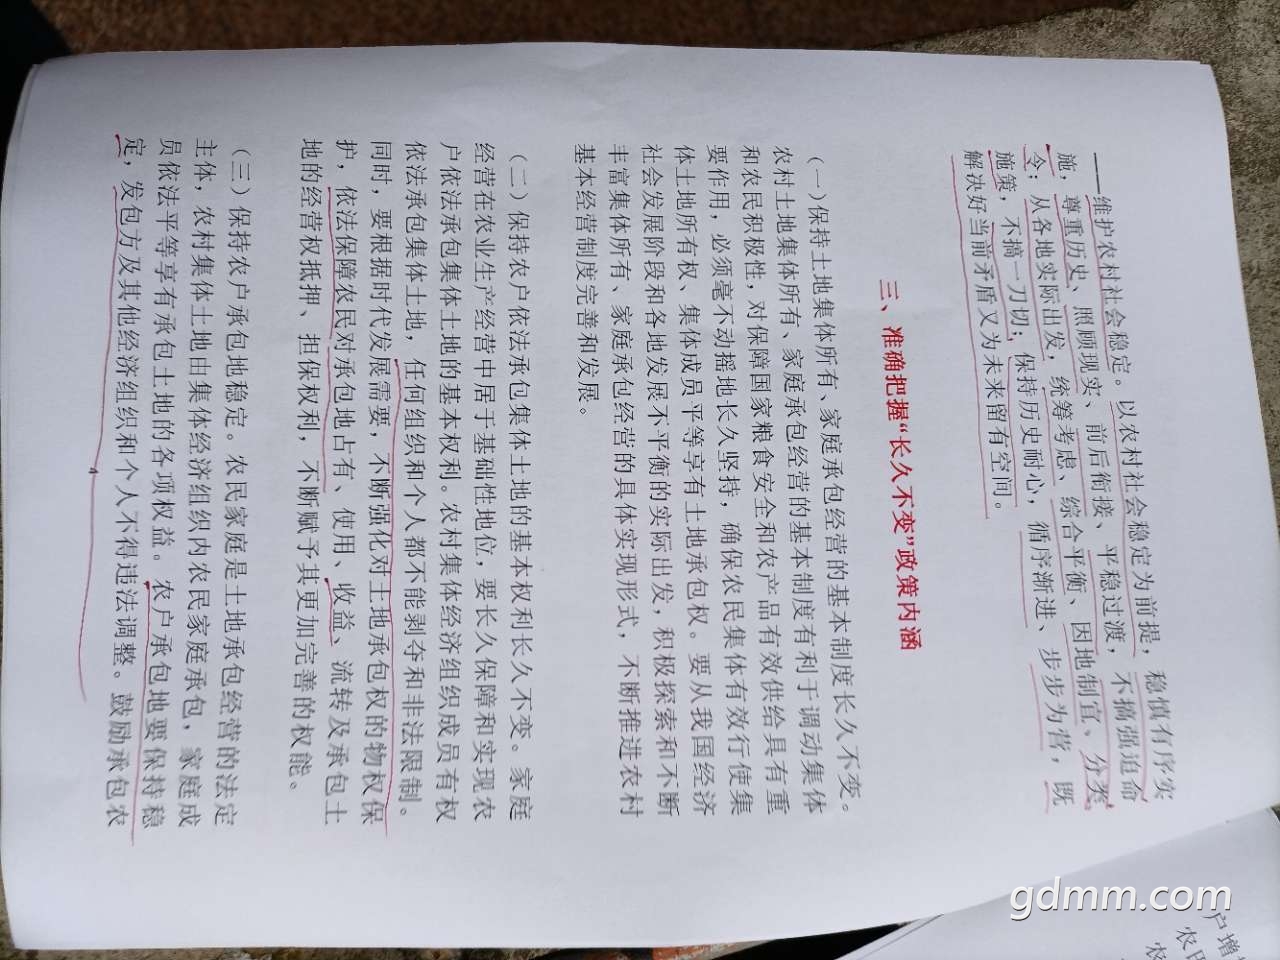 ——维护农村社会稳定。以农村社会稳定为前提，稳慎有序实
施，尊重历史、照顾现实、前后衔接、平稳过渡，不搞强迫命
令；从各地实际出发，统筹考虑、综合平衡、因地制宜、分类
施策，不搞一刀切；保持历史耐心，循序渐进、步步为营，既
解决好当前矛盾又为未来留有空间。
三、准确把握“长久不变”政策内涵
（一）保持土地集体所有、家庭承包经营的基本制度长久不变。
农村土地集体所有、家庭承包经营的基本制度有利于调动集体
和农民积极性，对保障国家粮食安全和农产品有效供给具有重
要作用，必须毫不动摇地长久坚持，确保农民集体有效行使集
体土地所有权、集体成员平等享有土地承包权。要从我国经济
社会发展阶段和各地发展不平衡的实际出发，积极探索和不断
丰富集体所有、家庭承包经营的具体实现形式，不断推进农村
基本经营制度完善和发展。
（二）保持农户依法承包集体土地的基本权利长久不变。家庭
经营在农业生产经营中居于基础性地位，要长久保障和实现农
户依法承包集体土地的基本权利。农村集体经济组织成员有权
依法承包集体土地，任何组织和个人都不能剥夺和非法限制。
同时，要根据时代发展需要，不断强化对土地承包权的物权保
护，依法保障农民对承包地占有、使用、收益、流转及承包土
地的经营权抵押、担保权利，不断赋予其更加完善的权能。
（三）保持农户承包地稳定。农民家庭是土地承包经营的法定
主体，农村集体土地由集体经济组织内农民家庭承包，家庭成
员依法平等享有承包土地的各项权益。农户承包地要保持稳
定，发包方及其他经济组织和个人不得违法调整。鼓励承包农
4
户增
农田
gdmm.com